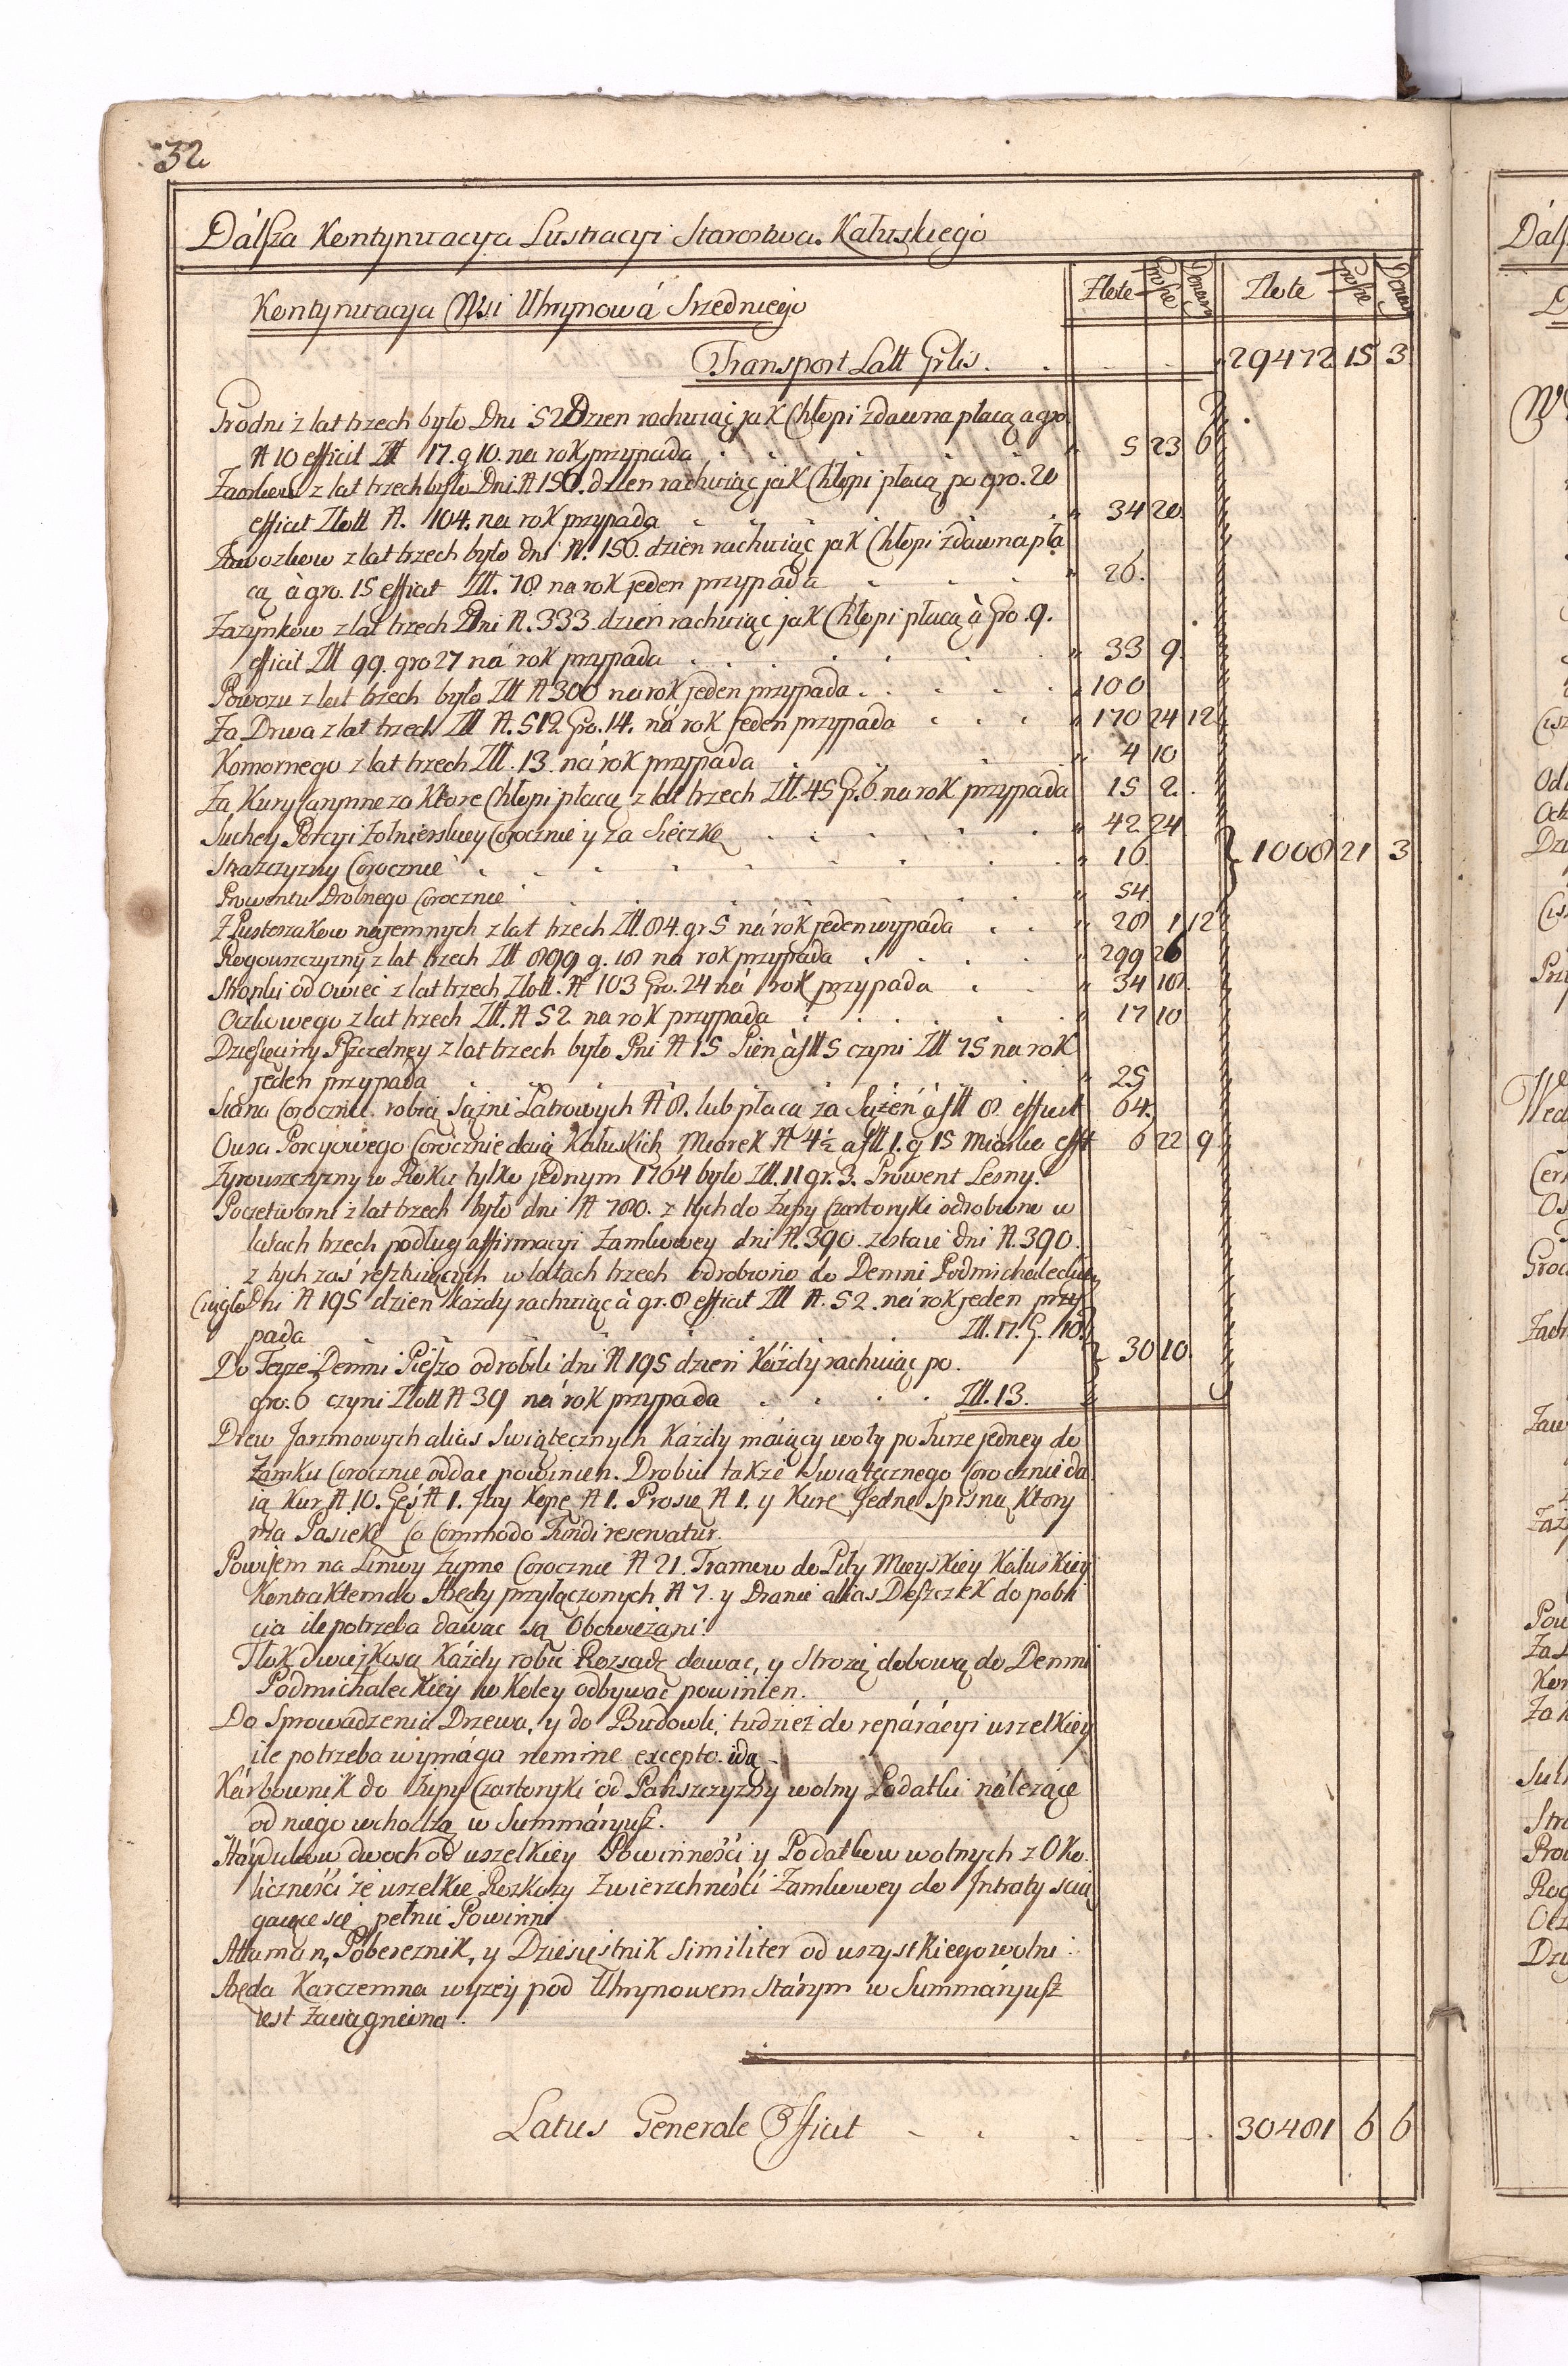 32
Dálsza Kontynuacya Lustracyi Starostwa Kałuskiego
Kontynuacya Wsi Uhrynowá Srzedniego
Złote Grosze Denary Złote Grosze Denary
Transport Latt Grlis. 29472 15 3
Grodni z lat trzech było Dni 52 Dzien rachuiąc jak Chłopi zdawna płacą a gro.
A 10 efficit Złł 17. g 10. na rok przypada 5 23 6
z lat trzech było Dni A 156. dzien rachuiąc jak Chłopi płacą po gro. 20
efficit Złott A. 104. na rok przypada 34 20
z lat trzech było dni A. 156. dzien rachuiąc jak Chłopi zdawna pła
cą à gro. 15 efficit Złł. 78 na rok jeden przypada 26.
Zazynkow z lat trzech Dni A. 333. dzien rachuiąc jak Chłopi płacą à Gro. 9.
efficit Złł 99. gro 27 ná rok przypada 33 9.
Powozu z lat trzech było Złł A 300 na rok jeden przypada 100
Za Drwa z lat trzech Złł A. 512 Gro. 14. ná rok jeden przypada 170 24 12
Komornego z lat trzech Złł. 13. ná rok przypada 4 10
Za Kury za ktore Chłopi płacą z lat trzech Złł. 45 g. 6. na rok przypada 15 2.
Suchey Porcyi Zołnierskiey Corocznie y za Sieczkę 42 24
Strażczyzny Corocznie 16 1008 21 3
Prowentu Drobnego Corocznie 54
Z Pustoszakow najemnych z lat trzech Złł. 84. gr 5 ná rok jeden wypada 28 1 12
Rogowszczyzny z lat trzech Złł 899 g. 18 na rok przypada 299 26
Skopki od owiec z lat trzech Złott. A 103 Gro. 24 ná rok przypada 34 18.
Oczkowego z lat trzech Złł. A 52 na rok przypada 17 10
Dziesięciny Pszczelney z lat trzech było Pni A 15 Pień à fłł 5 czyni Złł 75 na rok
jeden przypada 25
Siana Corocznie robią Sążni Łatrowych A 8. lub płacą za Sążeń à fłł 8. efficit 64.
Owsa Porcyowego Corocznie daią Kałuskich Miarek A 4½ a fłł 1. g 15 Miarka efft 6 22 9
Zyrowszczyzny w Roku tylko jednym 1764 było Złł. 11 gr. 3. Prowent Lesny.
Poczetworni z lat trzech było dni A 780. z tych do Zupy Czartoryki odrobiono w
latach trzech podług affirmacyi Zamkowey dni A. 390. zostaie dni A. 390.
z tych zaś resztuiących w latach trzech odrobiono do Demni Podmichaleckiey
Ciągło Dni A 195 dzien każdy rachuiąc à gr. 8 efficit Złł A. 52. ná rok jeden przy
pada Złł. 17. G. 10.
Do Teyże Demni Pieszo odrobili dni A 195 dzień Każdy rachuiąc po. 30 10.
gro. 6 czyni Złott A 39 ná rok przypada Złł. 13.
Drew Jarzmowych alias Swiątecznych Każdy máiący woły po Furze jedney do
Zamku Corocznie oddac powinien. Drobiu także Swiątecznego Corocznie da
ią Kur A 10. Gęś A 1. Jay Kopę A 1. Prosię A 1. y Kurę Jednę Spisną Ktory
ma Pasiekę Co Commodo Fundi reservatur.
Powijem na Linwy Zupne Corocznie A 21. Tramow do Piły Mieyskiey Kałuskiey
Kontraktem do Aredy przyłączonych A 7. y Dranic alias Deszczek do pobi
cia ile potrzeba dawac są Obowiązani.
Tłok dwie z Kosą Każdy robić Rozsadę dawac, y Strożą dobową do Demni
Podmichaleckiey w Koley odbywac powinien.
Do Sprowadzenia Drzewa, y do Budowli, tudzież do reparácyi wszelkiey
ile potrzeba wymága nemine excepto idą
Kárbownik do Zupy Czartoryki od Pańszczyzny wolny Podatki należące
od niego wchodzą w Summáryusz.
Háydukow dwoch od wszelkiey Powinności y Podatkow wolnych z Oko
liczności że wszelkie Rozkazy Zwierzchności Zamkowey do Intraty ścią
gaiące się pełnić Powinni
Attaman, Pobereznik, y Dziesiętnik Similiter od wszystkiego wolni.
Aręda Karczemna wyżey pod Uhrynowem Stárym w Summáryusz
iest Zaciągniona.
Latus Generale Efficit 30481 6 6